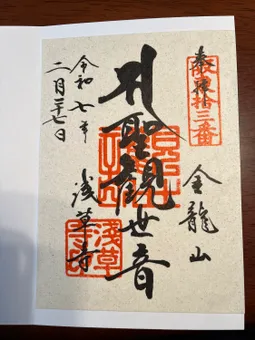 奉拝
坂東拾三番
金龍山
聖観世音
浅草寺
浅草寺
令和七年
二月二十七日